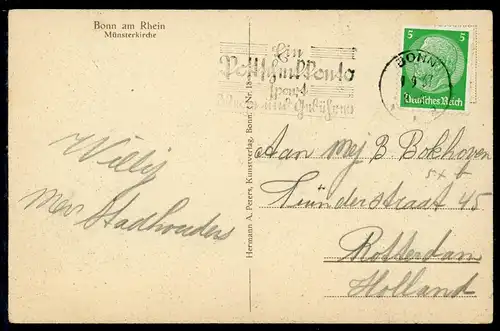 Bonn am Rhein
Münsterkirche
Ein
Postscheckkonto
spart
und Gebühren
5 5
Deutsches Reich
BONN
Hermann A. Peters, Kunstverlag, Bonn, Nr. 18
Willy
Mev Stadhouders
Aan Mej B. Bokhoven
45
Rotterdam
Holland